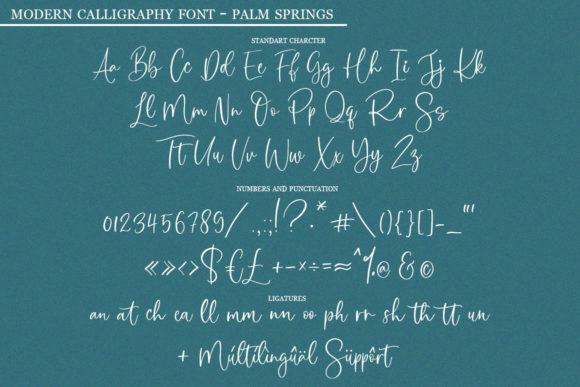 MODERN CALLIGRAPHY FONT - PALM SPRINGS
STANDART CHARCTER
Aa Bb Cc Dd Ee Ff Gg Hh Ii Jj Kk
Ll Mm Nn Oo Pp Qq Rr Ss
Tt Uu Vv Ww Xx Yy Zz
NUMBERS AND PUNCTUATION
0123456789/.,:;!?.*#\(){}[]-_"'
«»‹›$€£+-×÷=≈^%@&©
LIGATURES
an at ch ea ll mm nn oo ph rr sh th tt un
+ Múltilìngûäl Süppôrt